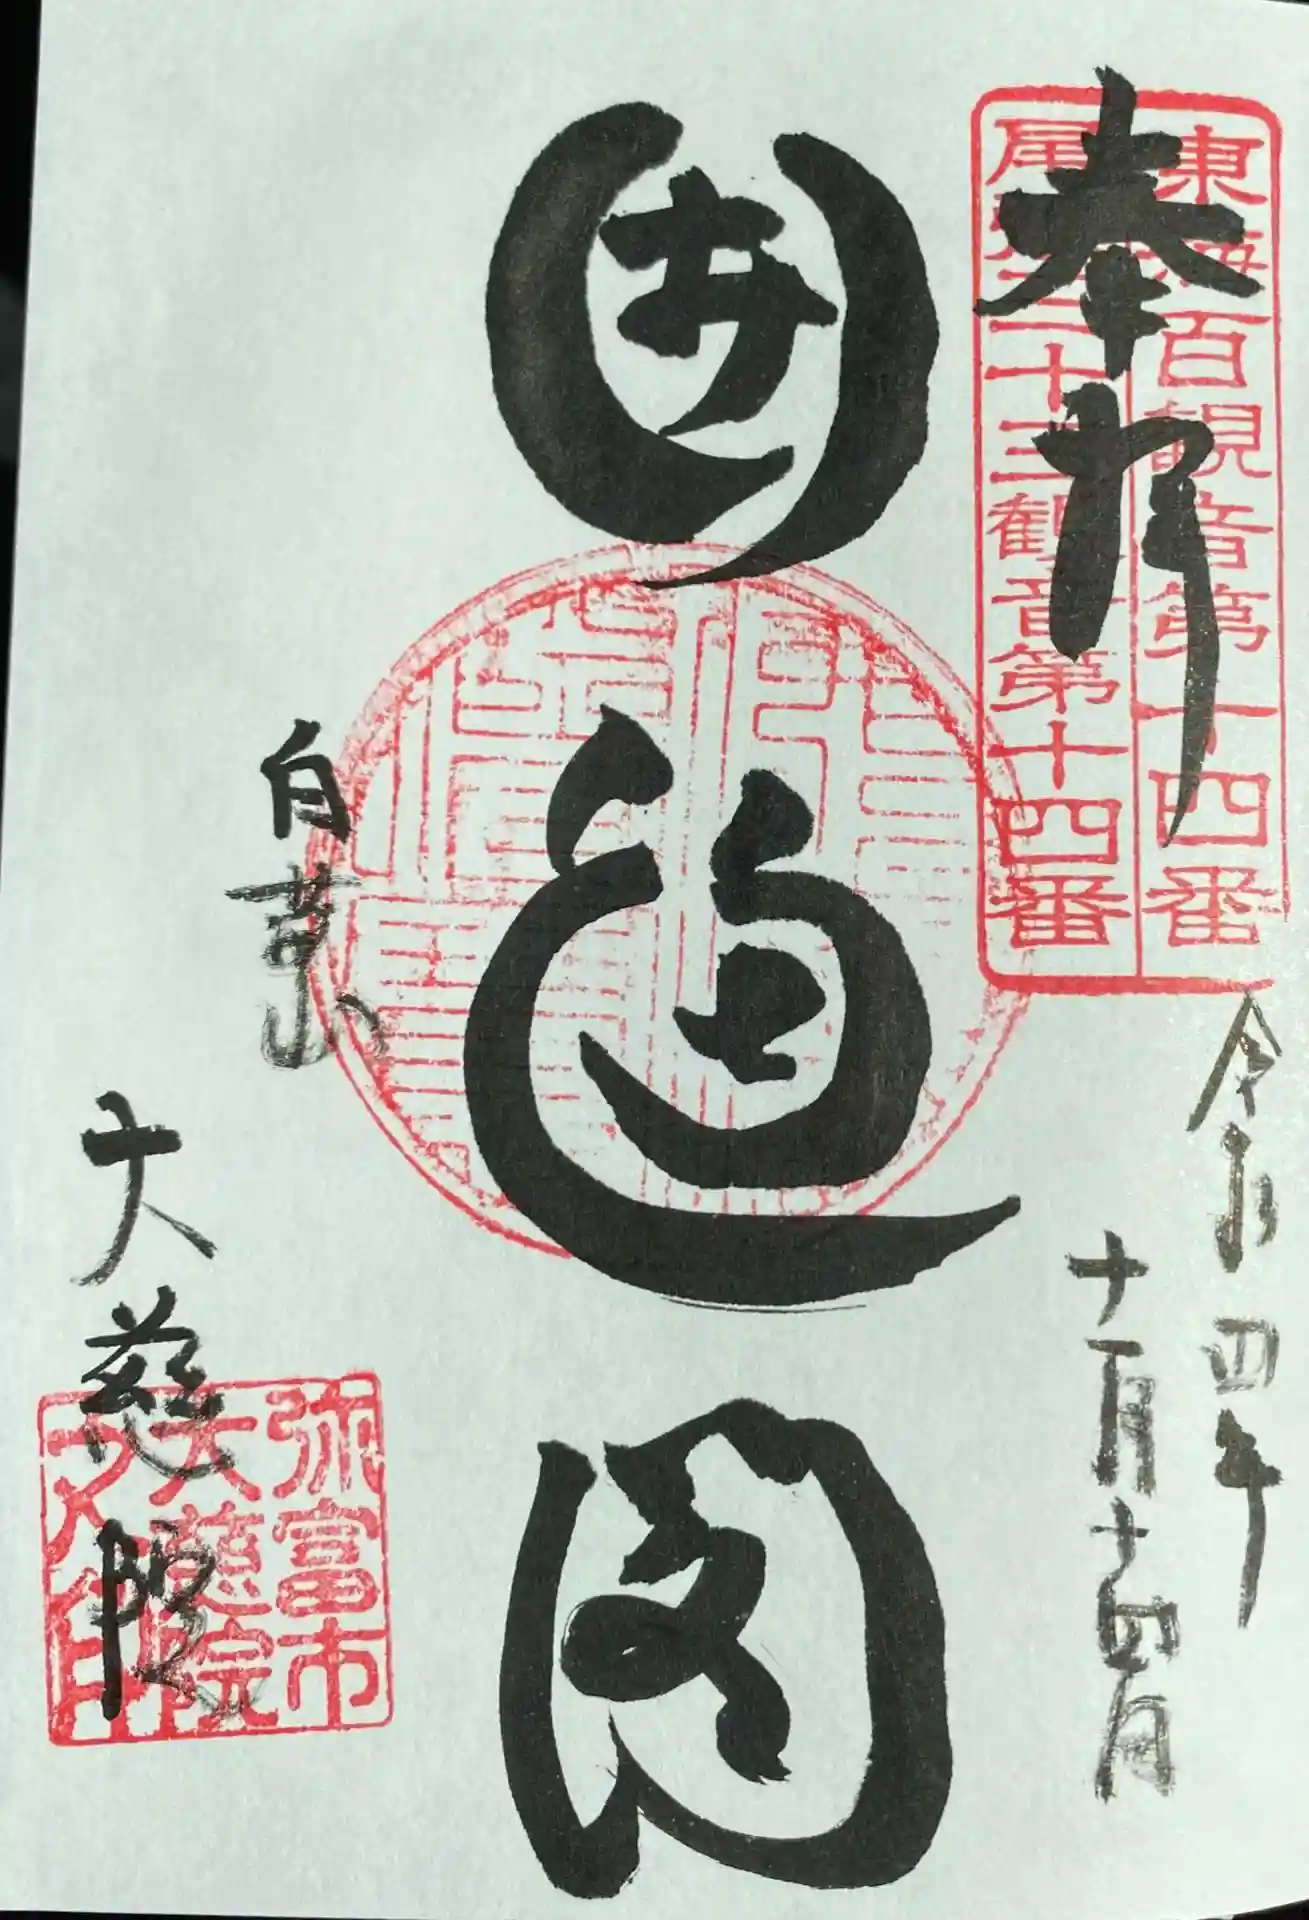 東海百観音第十四番
尾張三十三観音第十四番
奉拝
令和四年
十一月十四日
圓通閣
白華山
大慈院
弥富市
大慈院
之印